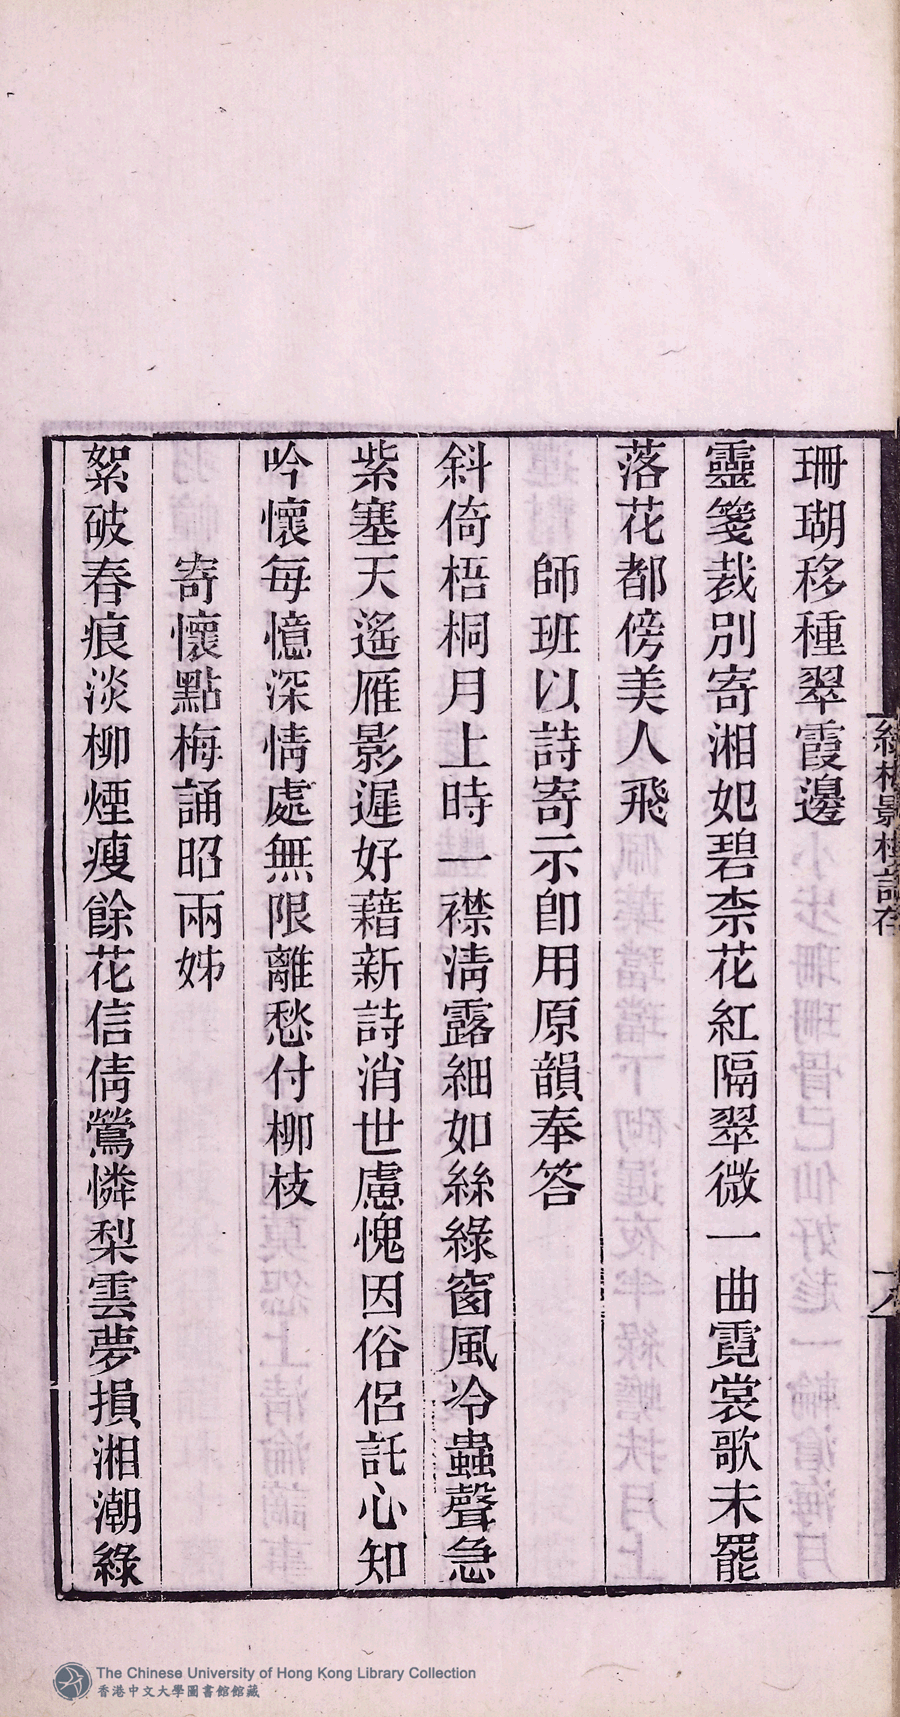 珊瑚移種翠霞邊
靈箋裁別寄湘妃碧柰花紅隔翠微一曲霓裳歌未罷
落花都傍美人飛
師班以詩寄示卽用原韻奉答
斜倚梧桐月上時一襟淸露細如絲綠窗風冷蟲聲急
紫塞天遙雁影遲好藉新詩消世慮愧因俗侶託心知
吟懷每憶深情處無限離愁付柳枝
寄懷點梅誦昭兩姊
絮破春痕淡柳煙瘦餘花信倩鶯憐梨雲夢損湘潮綠
The Chinese University of Hong Kong Library Collection
香港中文大學圖書館館藏